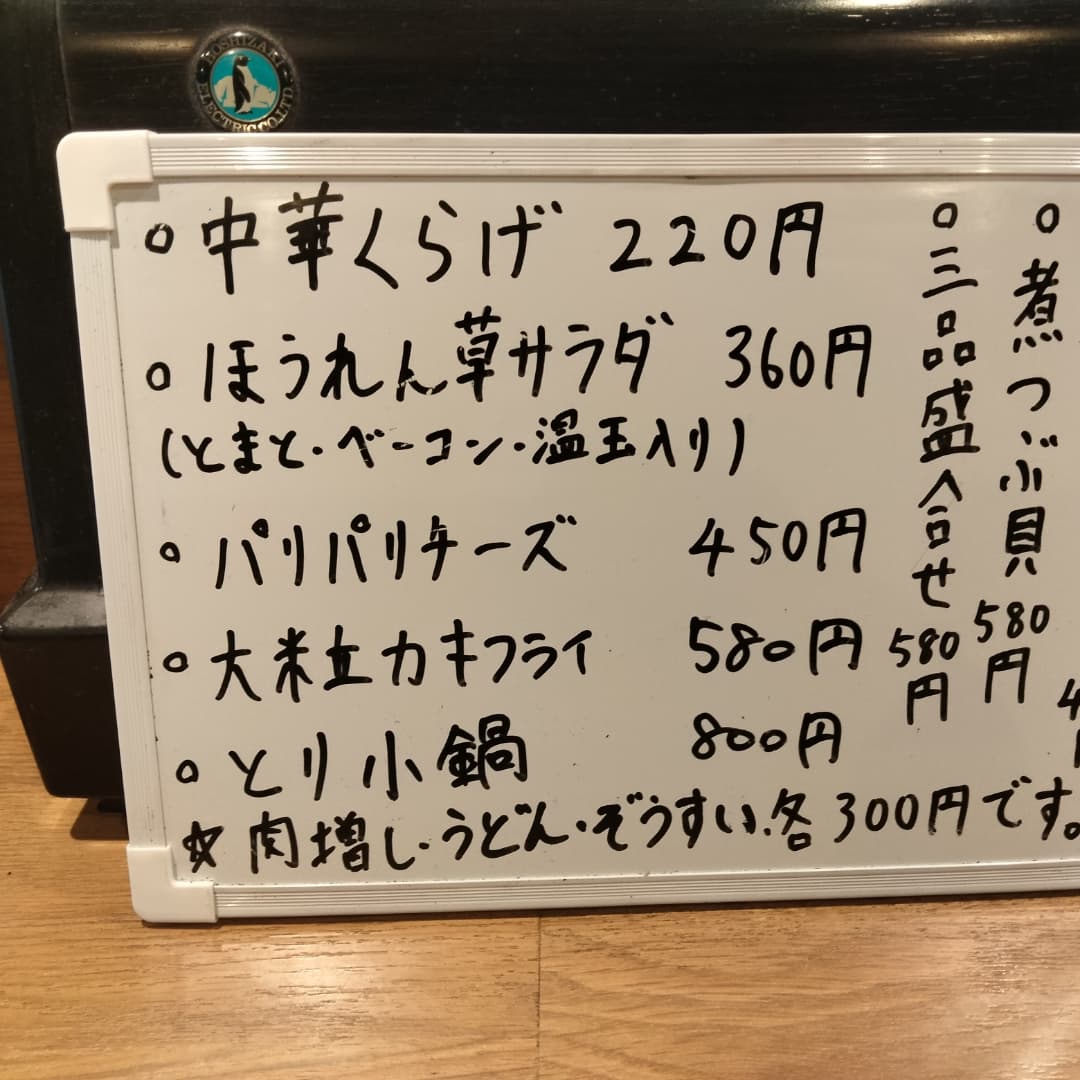 HOSHIZAKI ELECTRIC CO.,LTD.
○ 中華くらげ 220円
○ ほうれん草サラダ 360円
(とまと・ベーコン・温玉入り)
○ パリパリチーズ 450円
○ 大粒カキフライ 580円
○ とり小鍋 800円
☆ 肉増し・うどん・ぞうすい、各300円です。
○ 三品盛合せ 580円
○ 煮つぶ貝 580円